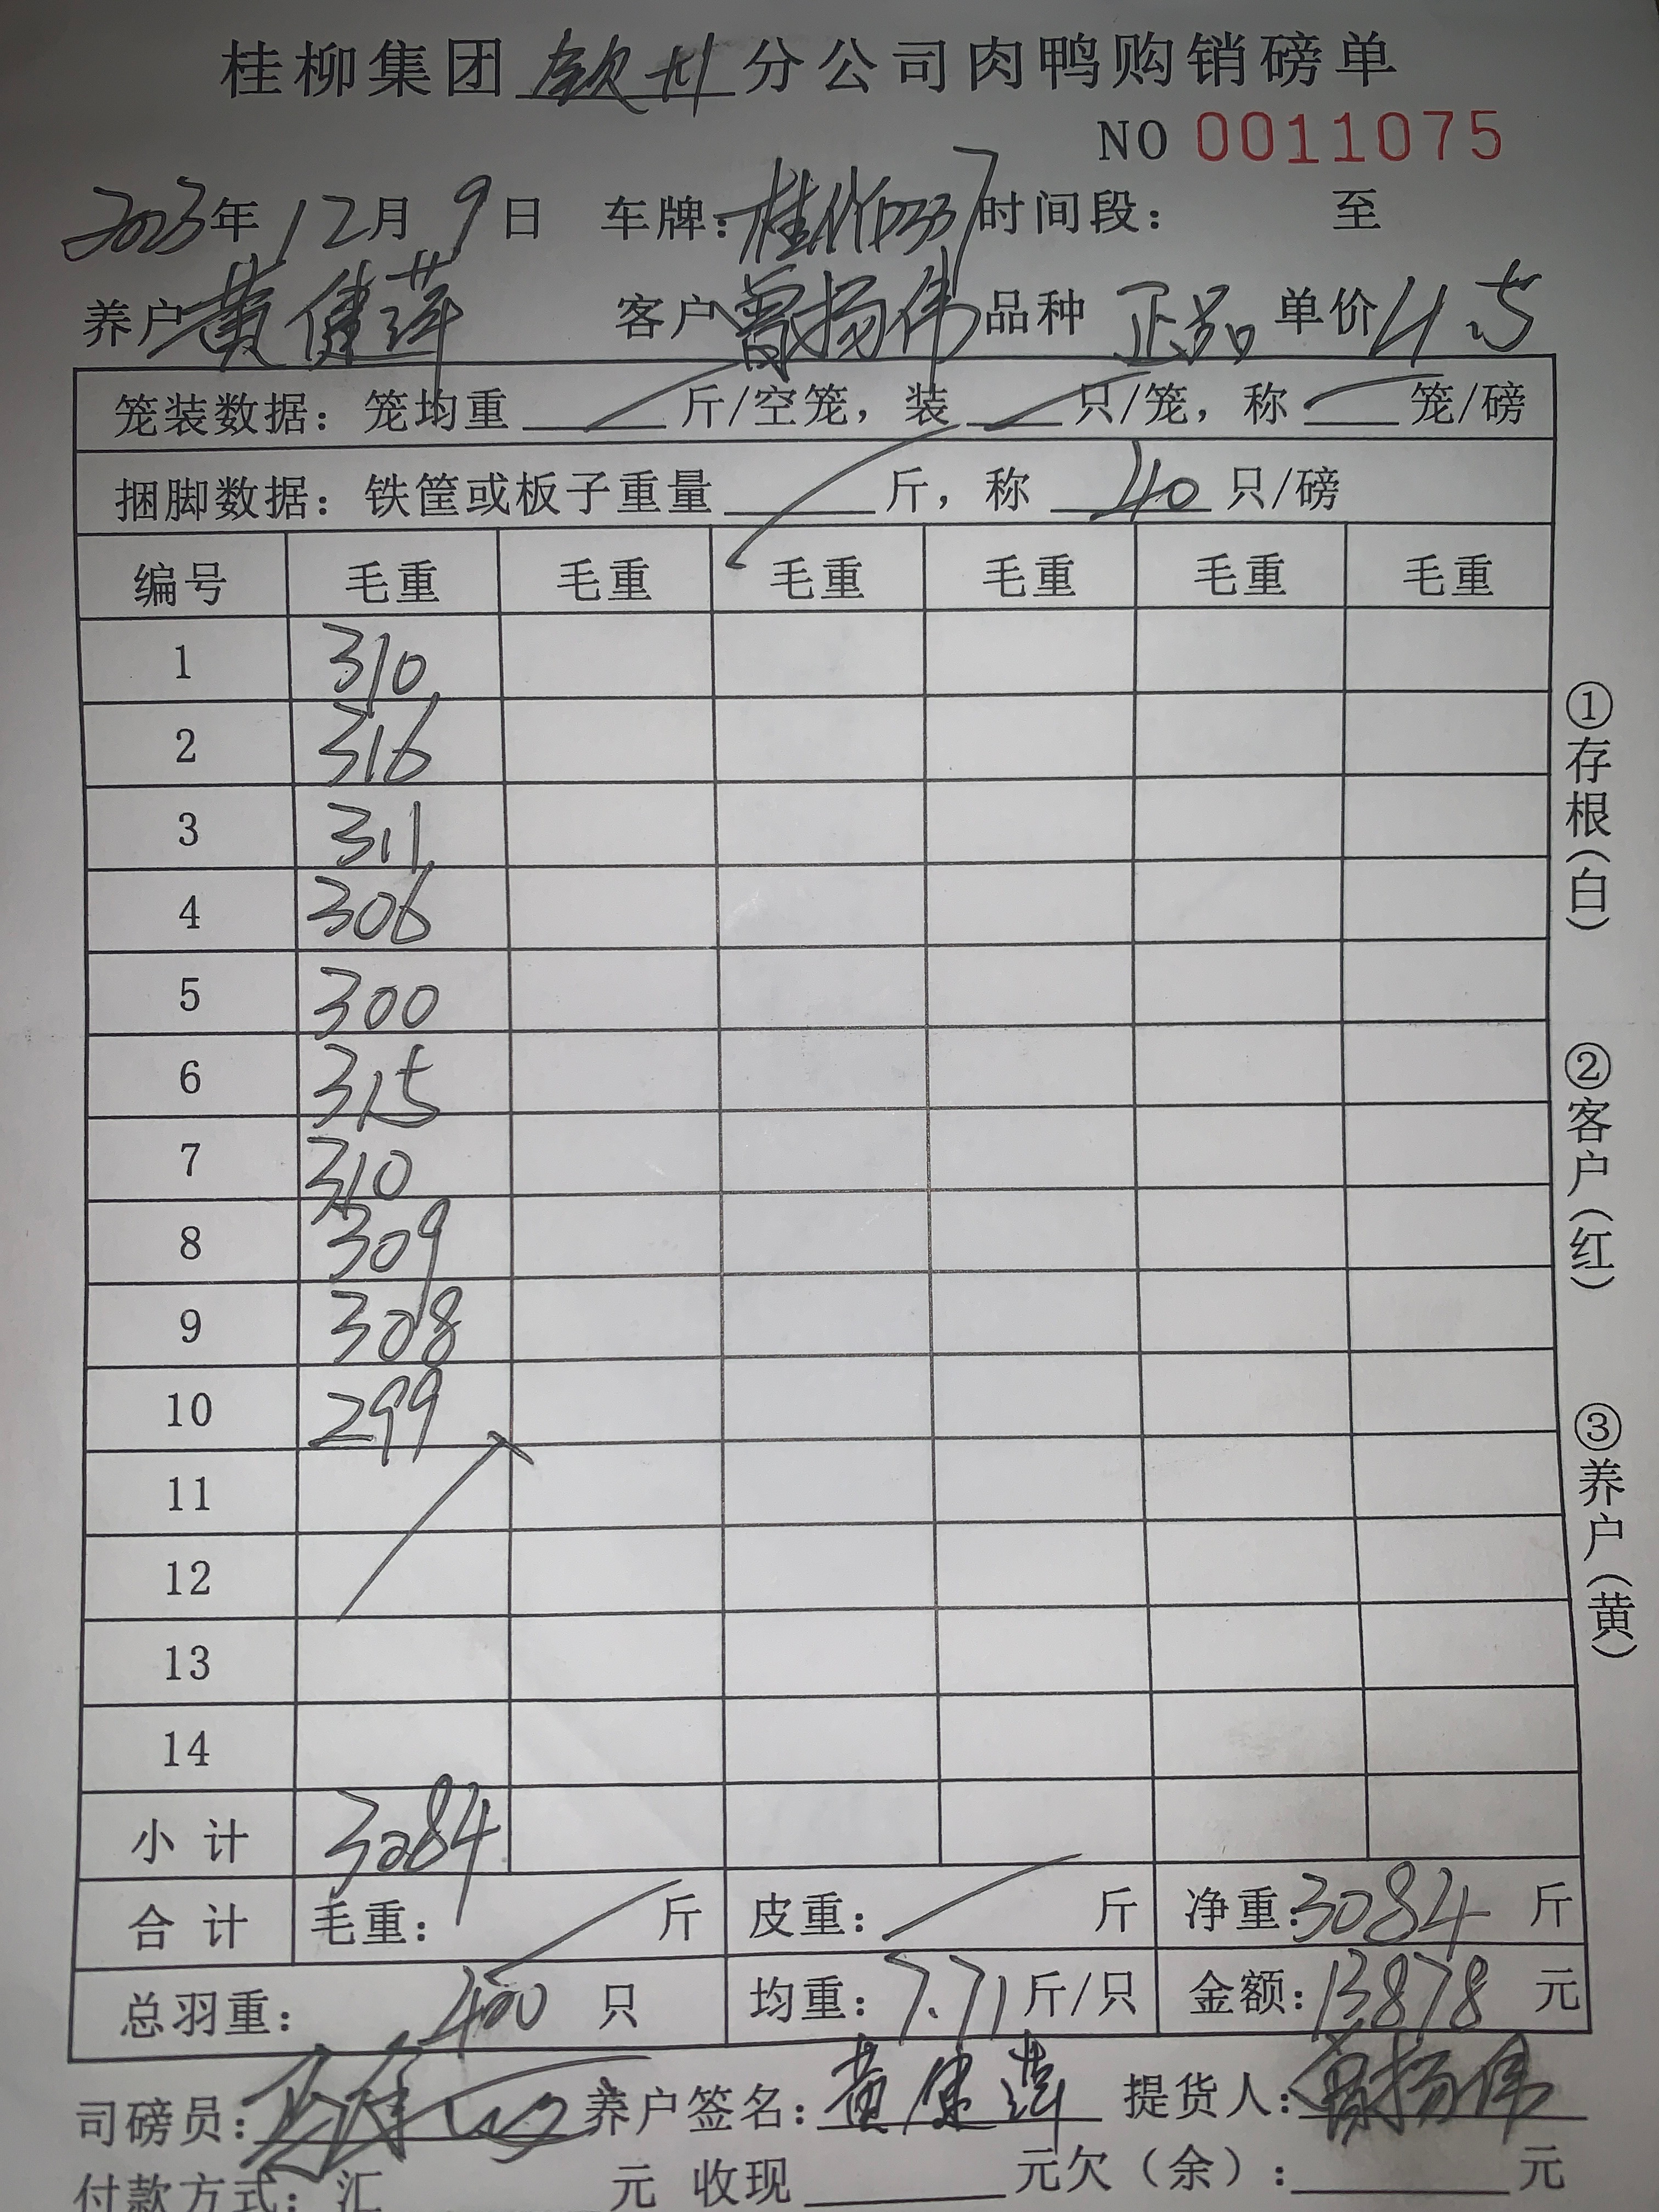 桂柳集团 钦州 分公司肉鸭购销磅单
NO 0011075
2023年 12月 9日 车牌: 时间段: 至
养户 黄健萍 客户 曾扬伟 品种 正品 单价 4.5
笼装数据: 笼均重 斤/空笼, 装 只/笼, 称 笼/磅
捆脚数据: 铁筐或板子重量 斤, 称 40 只/磅
编号 毛重 毛重 毛重 毛重 毛重 毛重
1 310
2 316
3 311
4 306
5 300
6 315
7 310
8 309
9 308
10 299
11
12
13
14
小计 3084
合计 毛重: 斤 皮重: 斤 净重: 3084 斤
总羽重: 400 只 均重: 7.71 斤/只 金额: 13878 元
司磅员: 养户签名: 黄健萍 提货人: 曾扬伟
付款方式: 汇 元 收现 元欠(余): 元
①存根(白)
②客户(红)
③养户(黄)